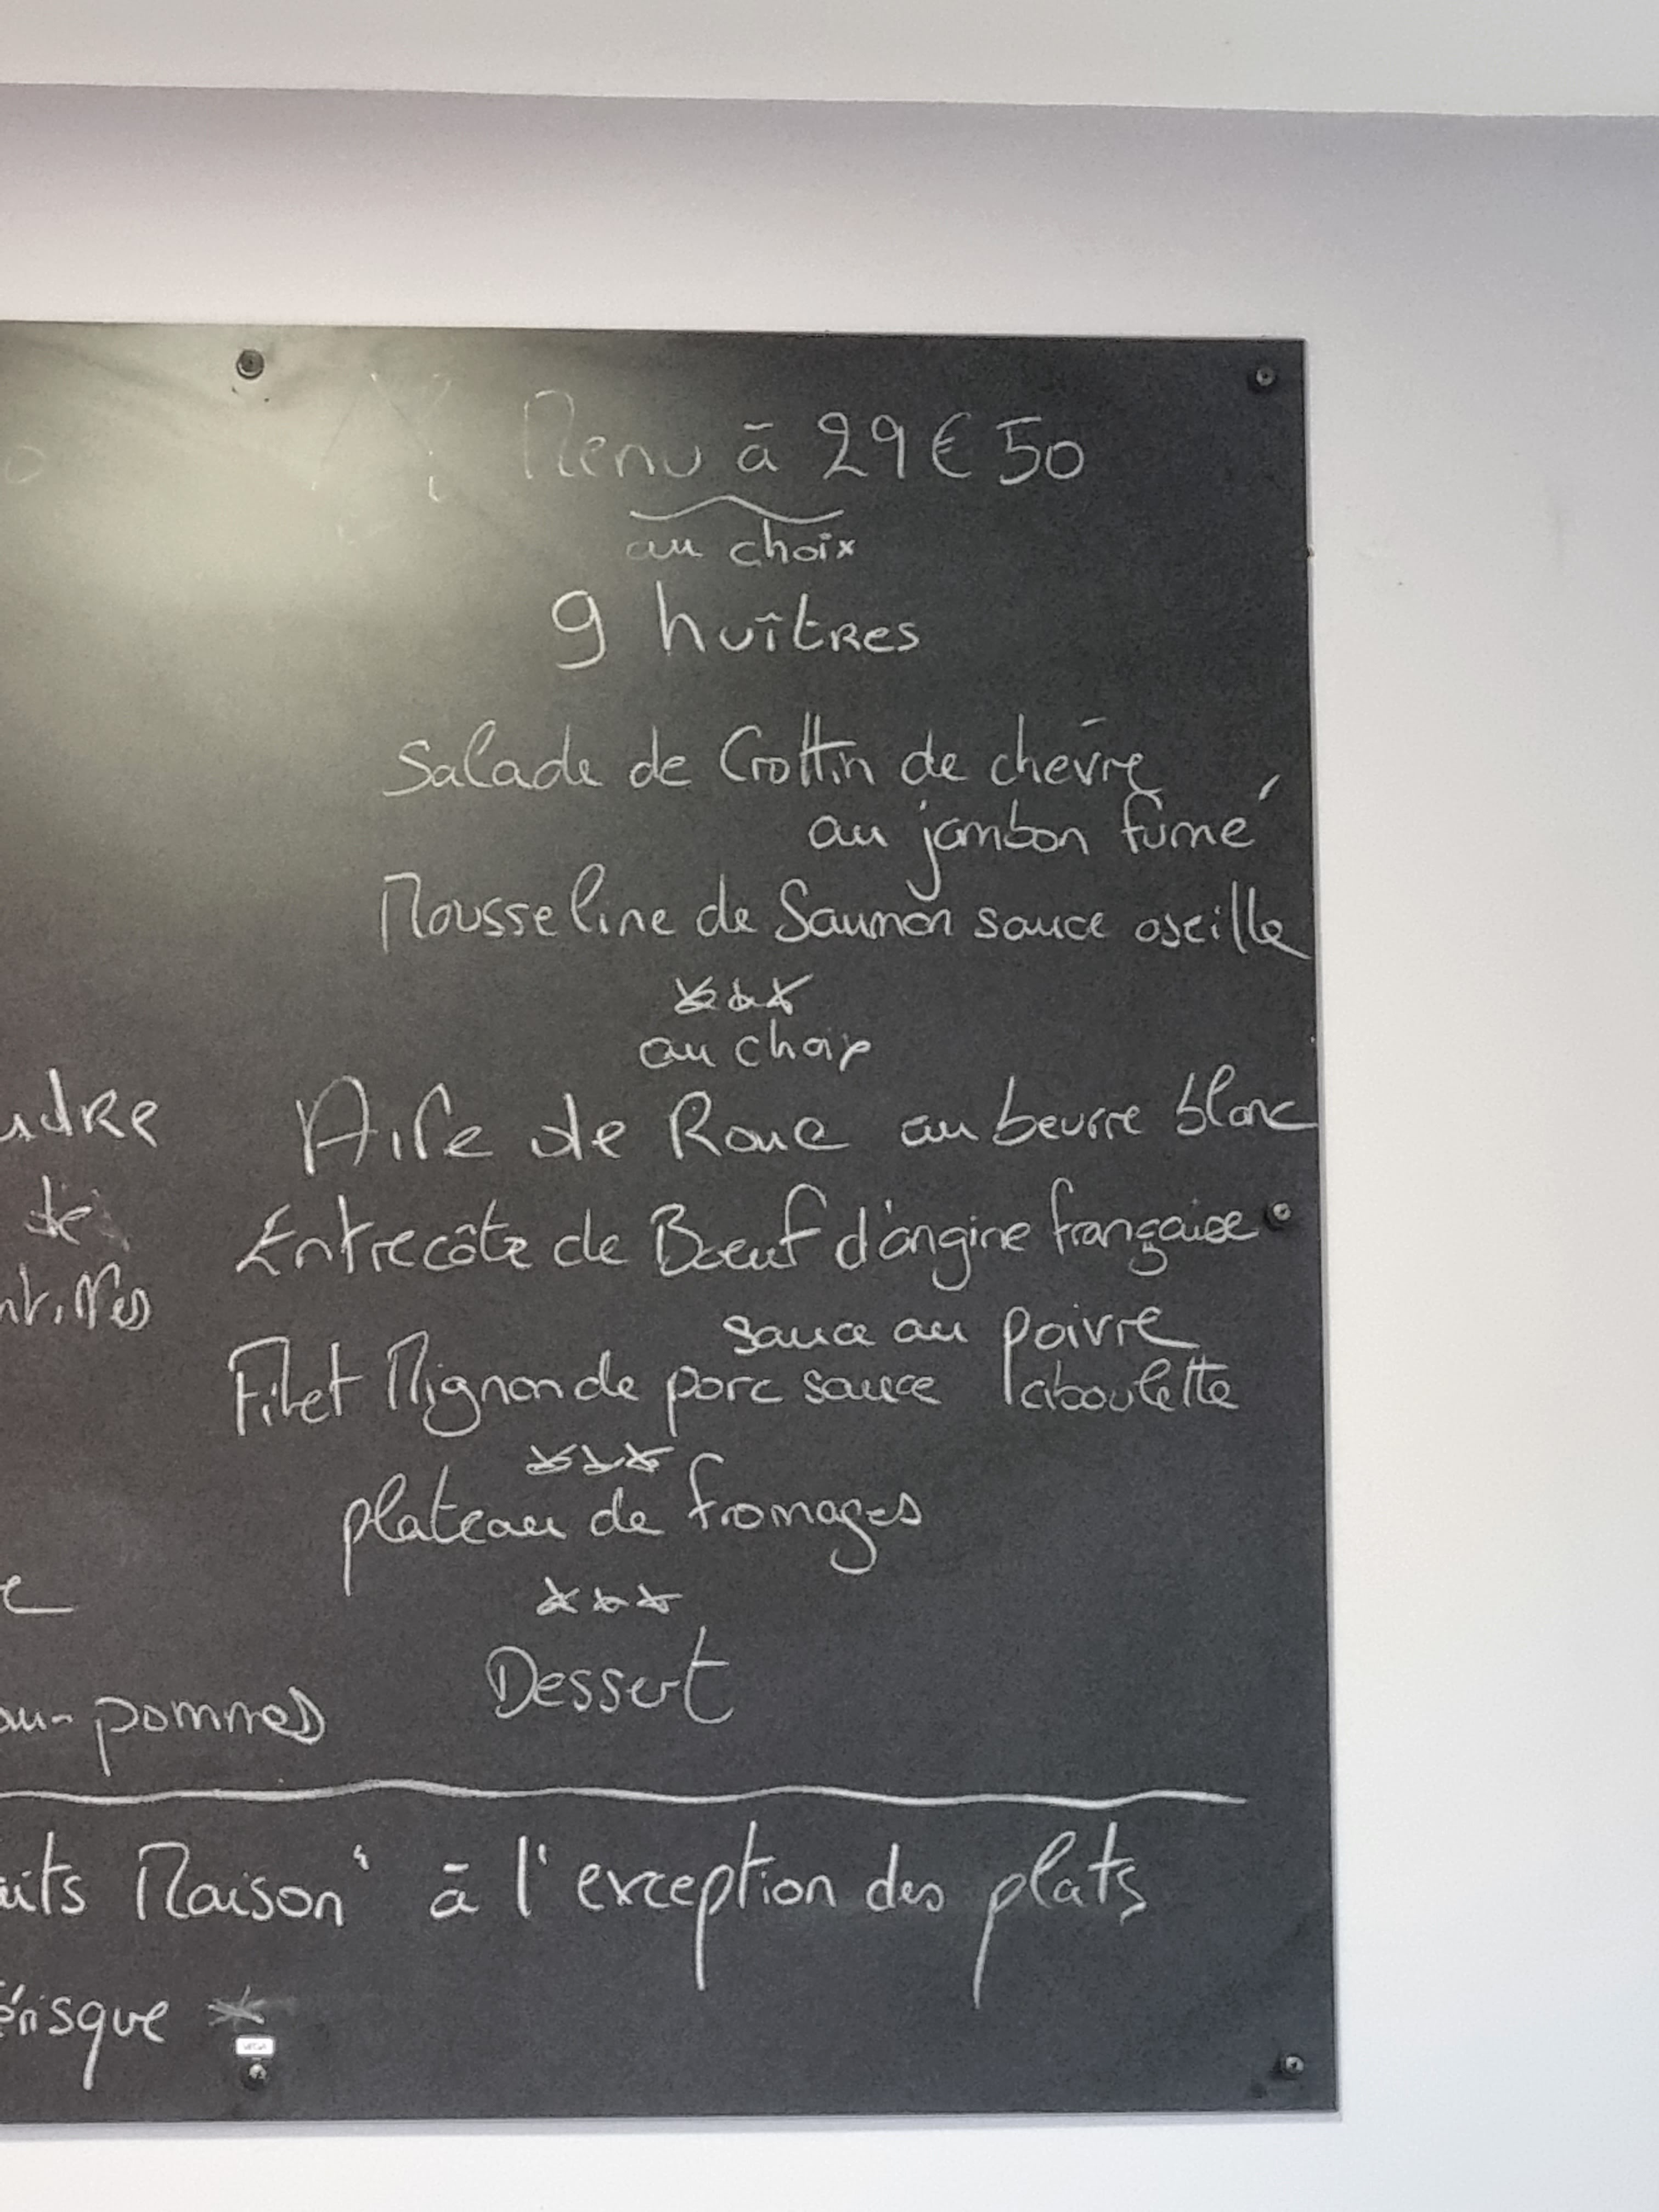 Menu à 29€50
au choix
9 huîtres
Salade de Crottin de chèvre
au jambon fumé
Mousseline de Saumon sauce oseille
***
au choix
Aile de Raie au beurre blanc
Entrecôte de Bœuf d'origine française
sauce au poivre
Filet Mignon de porc sauce ciboulette
***
plateau de fromages
***
Dessert
de
au-pommes
aits Maison" à l'exception des plats
érisque *